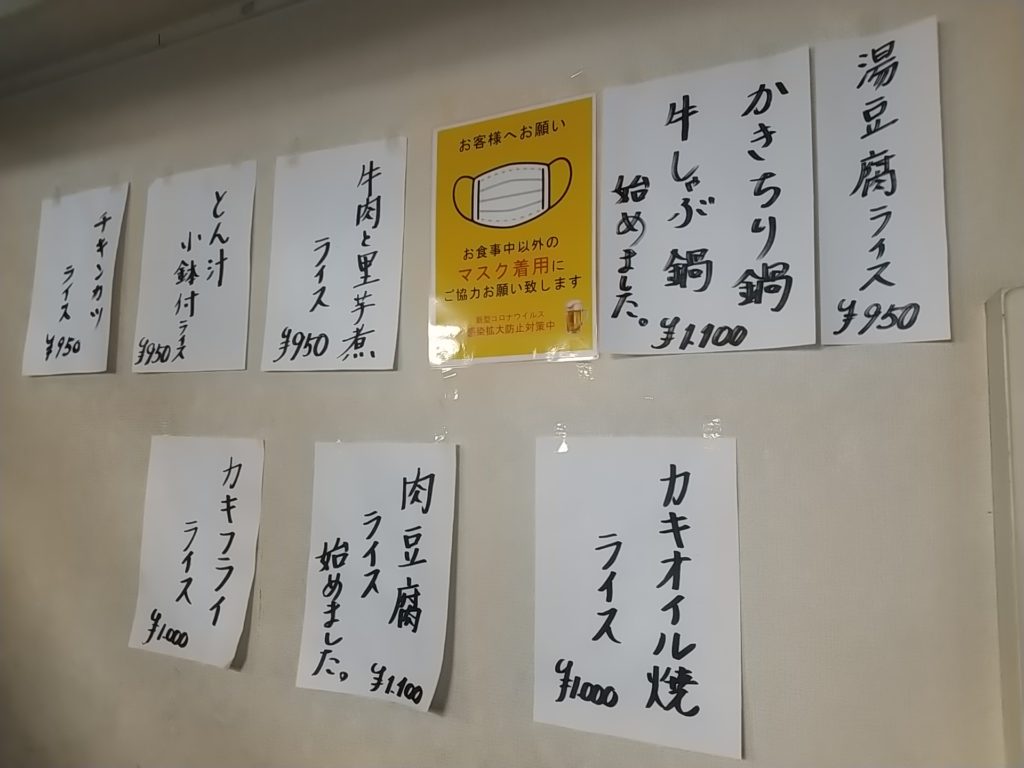 湯豆腐ライス
¥950
かきちり鍋
牛しゃぶ鍋
始めました。
¥1.100
お客様へお願い
お食事中以外の
マスク着用に
ご協力お願い致します
新型コロナウイルス
感染拡大防止対策中
牛肉と里芋煮
ライス
¥950
とん汁
小鉢付ライス
¥950
チキンカツ
ライス
¥950
カキオイル焼
ライス
¥1.000
肉豆腐
ライス
始めました。
¥1.100
カキフライ
ライス
¥1.000